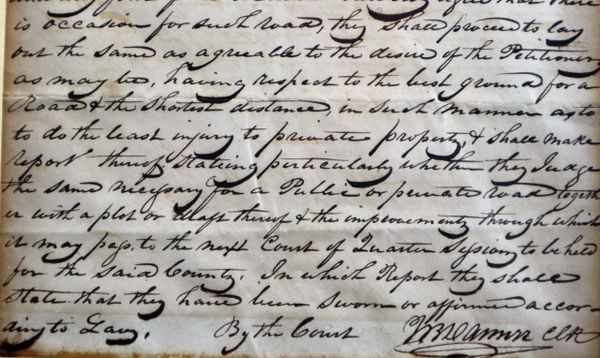 agree that there
is occasion for such road, they shall proceed to lay
out the same as agreeable to the desire of the Petitioners
as may be, having respect to the best ground for a
Road & the shortest distance, in such manner as to
to do the least injury to private property & shall make
report thereof stateing particularly whether they Judge
the same necessary for a Public or private road togeth
er with a plot or draft thereof & the improvements through which
it may pass, to the next Court of Quarter Sessions to be held
for the said County. In which Report they shall
state that they have been sworn or affirmed accor-
ding to Law.      By the Court      Clk